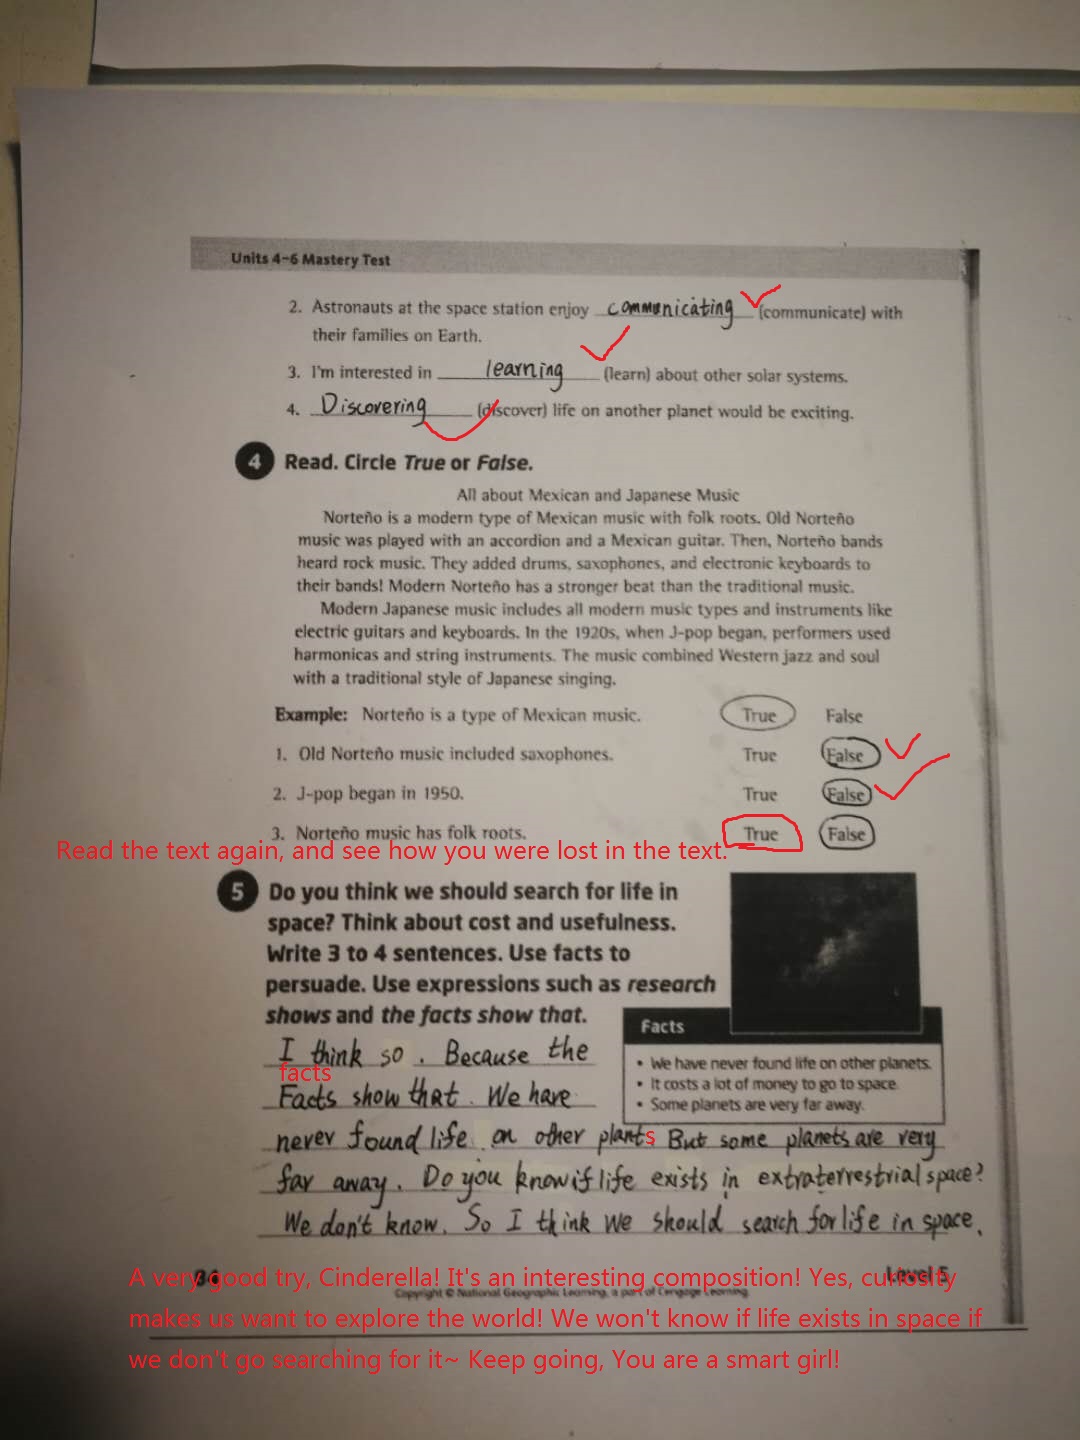 Units 4-6 Mastery Test
2. Astronauts at the space station enjoy communicating (communicate) with
their families on Earth.
3. I'm interested in learning (learn) about other solar systems.
4. Discovering (discover) life on another planet would be exciting.
4 Read. Circle True or False.
All about Mexican and Japanese Music
Norteño is a modern type of Mexican music with folk roots. Old Norteño
music was played with an accordion and a Mexican guitar. Then, Norteño bands
heard rock music. They added drums, saxophones, and electronic keyboards to
their bands! Modern Norteño has a stronger beat than the traditional music.
Modern Japanese music includes all modern music types and instruments like
electric guitars and keyboards. In the 1920s, when J-pop began, performers used
harmonicas and string instruments. The music combined Western jazz and soul
with a traditional style of Japanese singing.
Example: Norteño is a type of Mexican music. True False
1. Old Norteño music included saxophones. True False
2. J-pop began in 1950. True False
3. Norteño music has folk roots. True False
Read the text again, and see how you were lost in the text.
5 Do you think we should search for life in
space? Think about cost and usefulness.
Write 3 to 4 sentences. Use facts to
persuade. Use expressions such as research
shows and the facts show that.
Facts
• We have never found life on other planets.
• It costs a lot of money to go to space.
• Some planets are very far away.
I think so. Because the
facts
Facts show that. We have
never found life on other plants But some planets are very
far away. Do you know if life exists in extraterrestrial space?
We don't know. So I think We should search for life in space.
A very good try, Cinderella! It's an interesting composition! Yes, curiosity
makes us want to explore the world! We won't know if life exists in space if
we don't go searching for it~ Keep going, You are a smart girl!
Level 5
Copyright © National Geographic Learning, a part of Cengage Learning